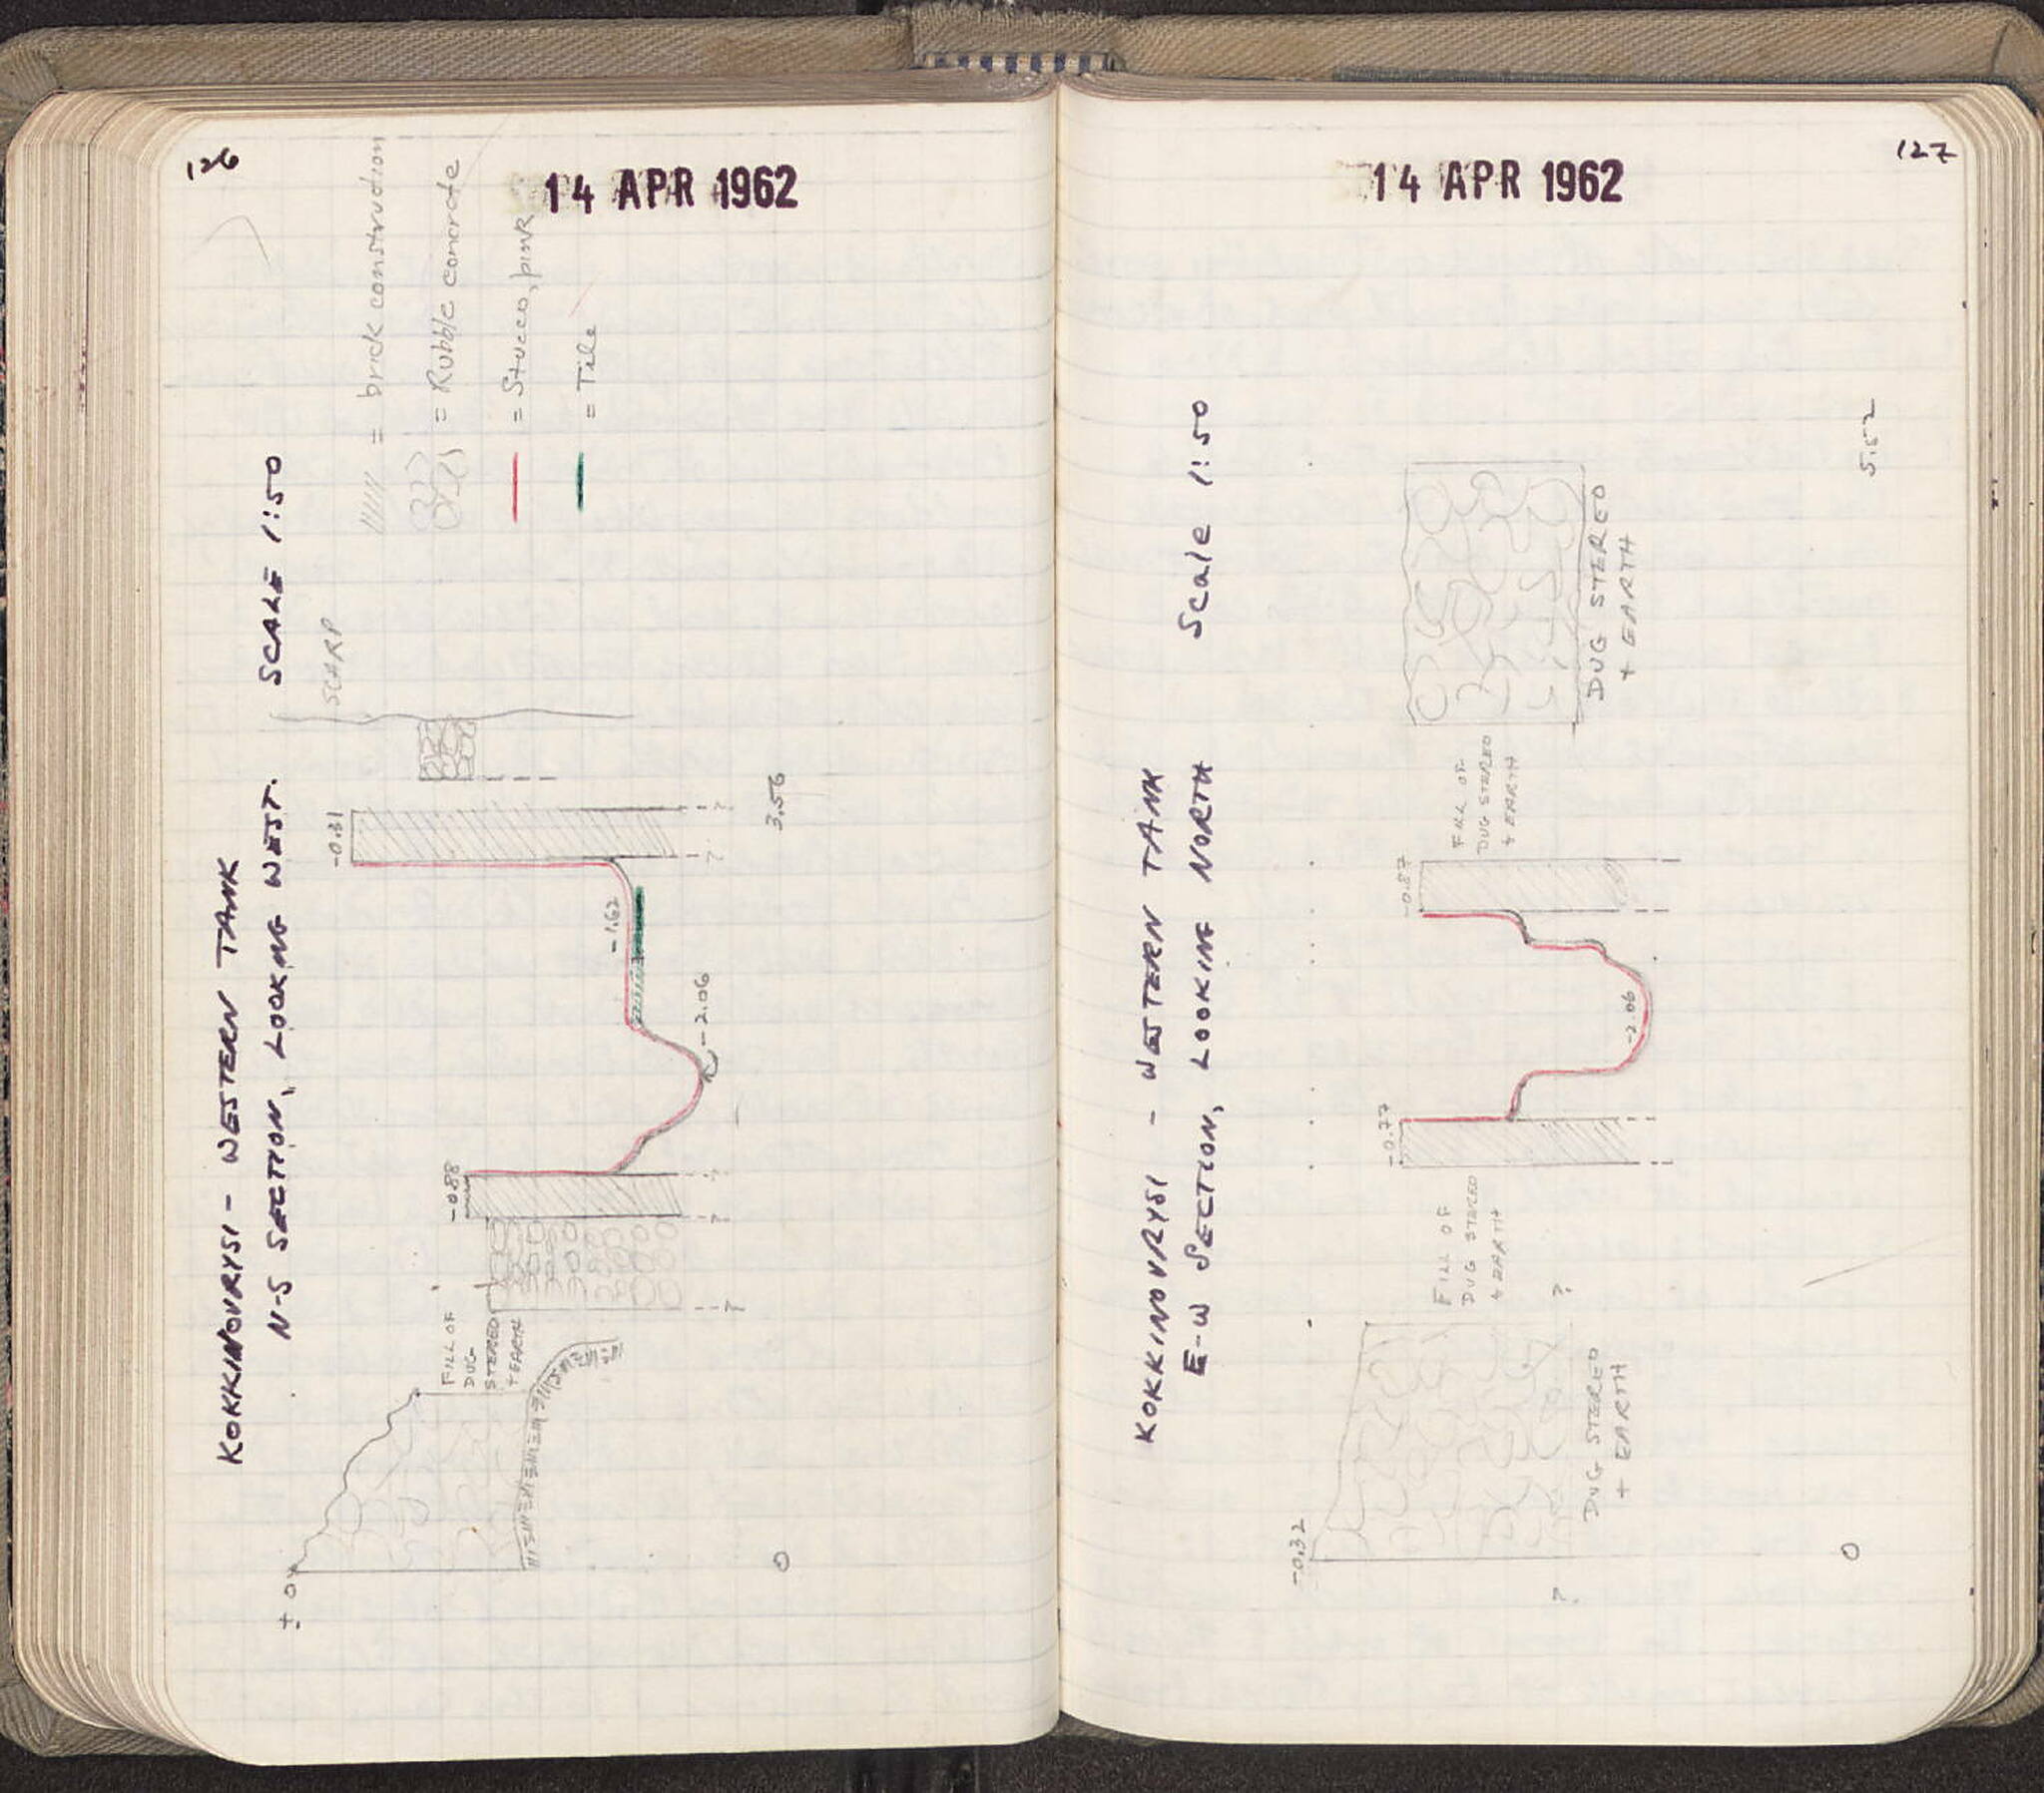 126
14 APR 1962
KOKKINOVRYSI - WESTERN TANK
N-S SECTION, LOOKING WEST.
SCALE 1:50
= brick construction
= Rubble concrete
= Stucco, pink
= Tile
SCARP
± 0
-0.31
-1.62
-2.06
-0.88
FILL OF
DUG
STEREO
+ EARTH
?
?
?
?
?
0
3.56
127
14 APR 1962
KOKKINOVRYSI - WESTERN TANK
E-W SECTION, LOOKING NORTH
Scale 1:50
-0.32
-0.77
-2.06
-0.87
FILL OF
DUG STEREO
+ EARTH
FILL OF
DUG STEREO
+ EARTH
DUG STEREO
+ EARTH
DUG STEREO
+ EARTH
?
?
0
5.52